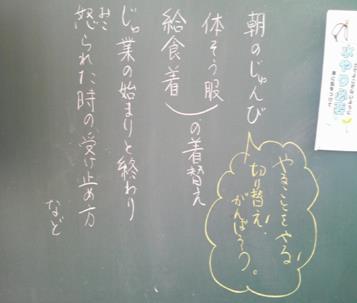 朝のじゅんび
体そう服
給食着
の着替え
じゅ業の始まりと終わり
怒られた時の受け止め方
おこ
など
やることをやる!
切り替え!
がんばろう。